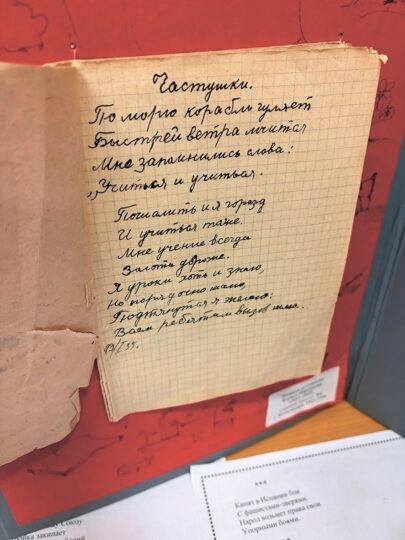 Частушки.
По морю корабль гуляет
Быстрей ветра мчится
Мне запомнились слова:
„Учиться и учиться.
Пошалить и я горазд
И учиться тоже.
Мне учение всегда
Золота дороже.
Я уроки хоть и знаю,
Но порядочно шалю,
Подтянуться я желаю:
Всем ребятам вызов шлю.
***
Кипят в Испании бои
С фашистами-зверями.
Народ возьмет права свои
Упорными боями.
Союзу
закипает